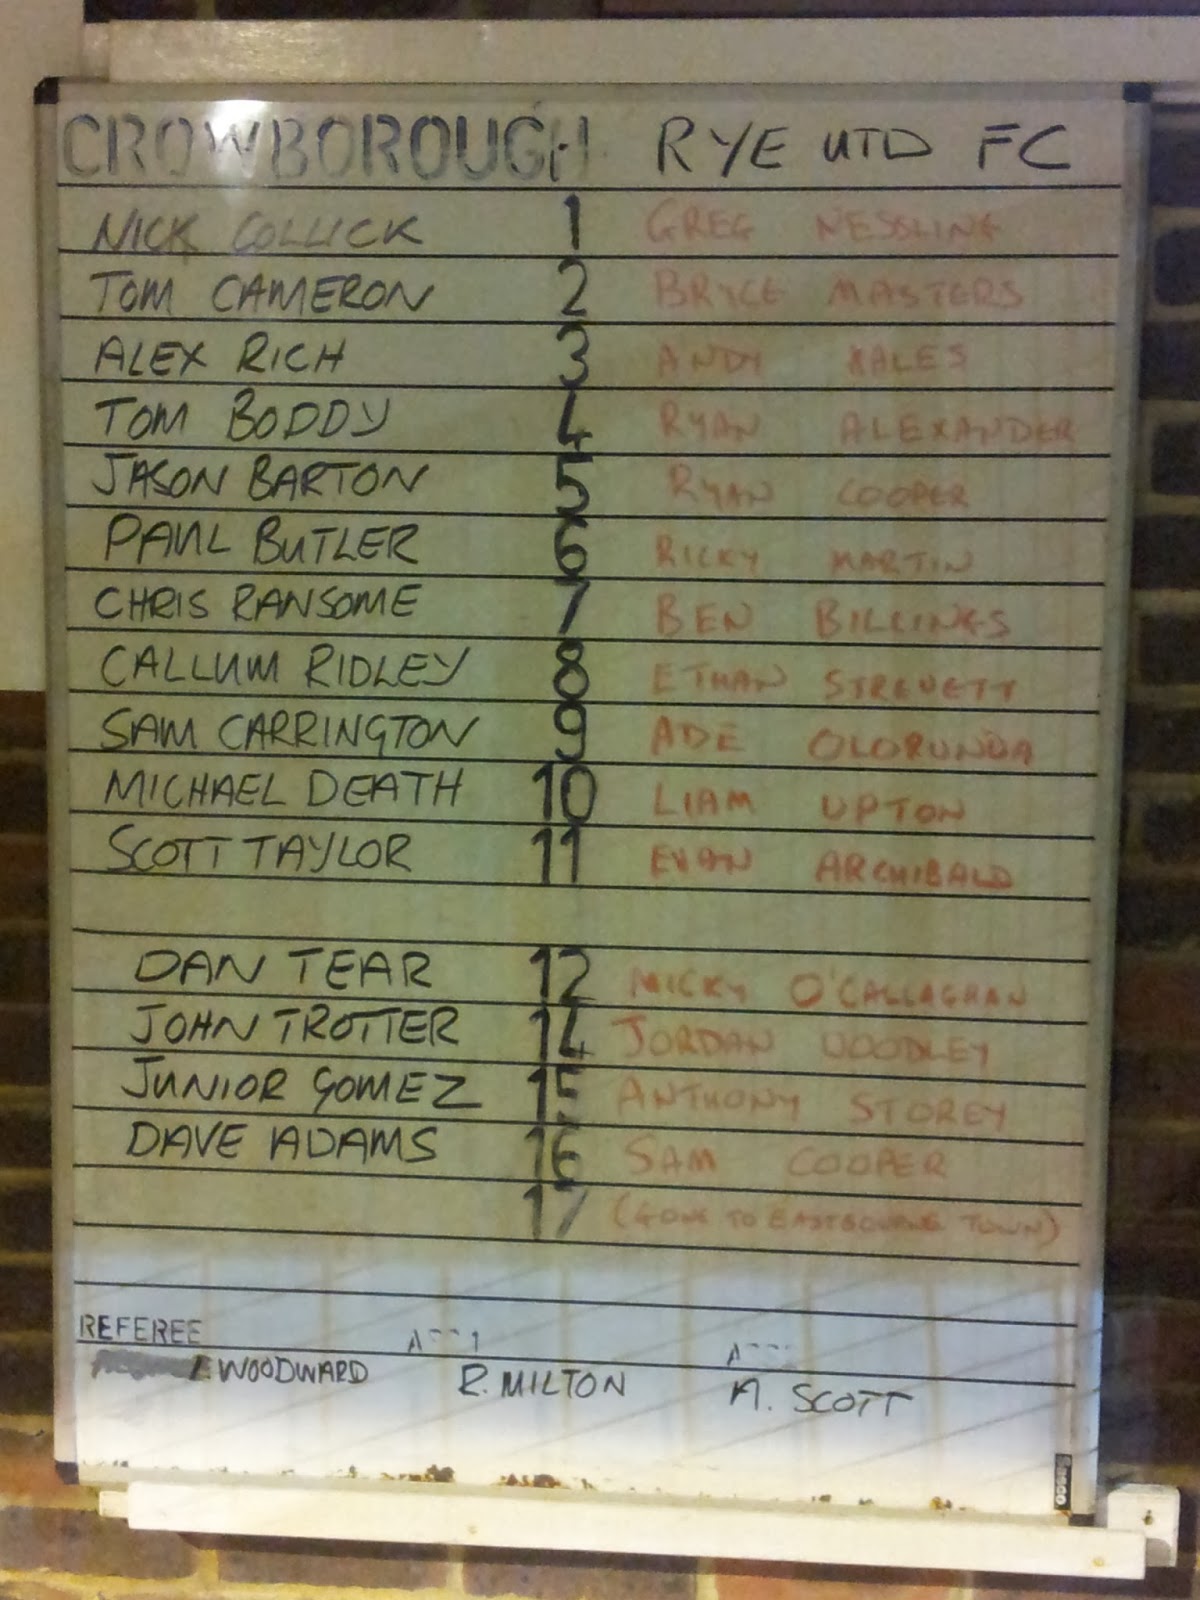 CROWBOROUGH RYE UTD FC
NICK COLLICK 1 GREG NESSLING
TOM CAMERON 2 BRYCE MASTERS
ALEX RICH 3 ANDY
TOM BODDY 4 RYAN ALEXANDER
JASON BARTON 5 RYAN COOPER
PAUL BUTLER 6 RICKY MARTIN
CHRIS RANSOME 7 BEN BILLINGS
CALLUM RIDLEY 8 ETHAN STREVETT
SAM CARRINGTON 9 ADE OLORUNDA
MICHAEL DEATH 10 LIAM UPTON
SCOTT TAYLOR 11 EVAN ARCHIBALD
DAN TEAR 12 MICKY O'CALLAGHAN
JOHN TROTTER 14 JORDAN WOODLEY
JUNIOR GOMEZ 15 ANTHONY STOREY
DAVE ADAMS 16 SAM COOPER
17 (GONE TO EASTBOURNE TOWN)
REFEREE
WOODWARD R. MILTON A. SCOTT